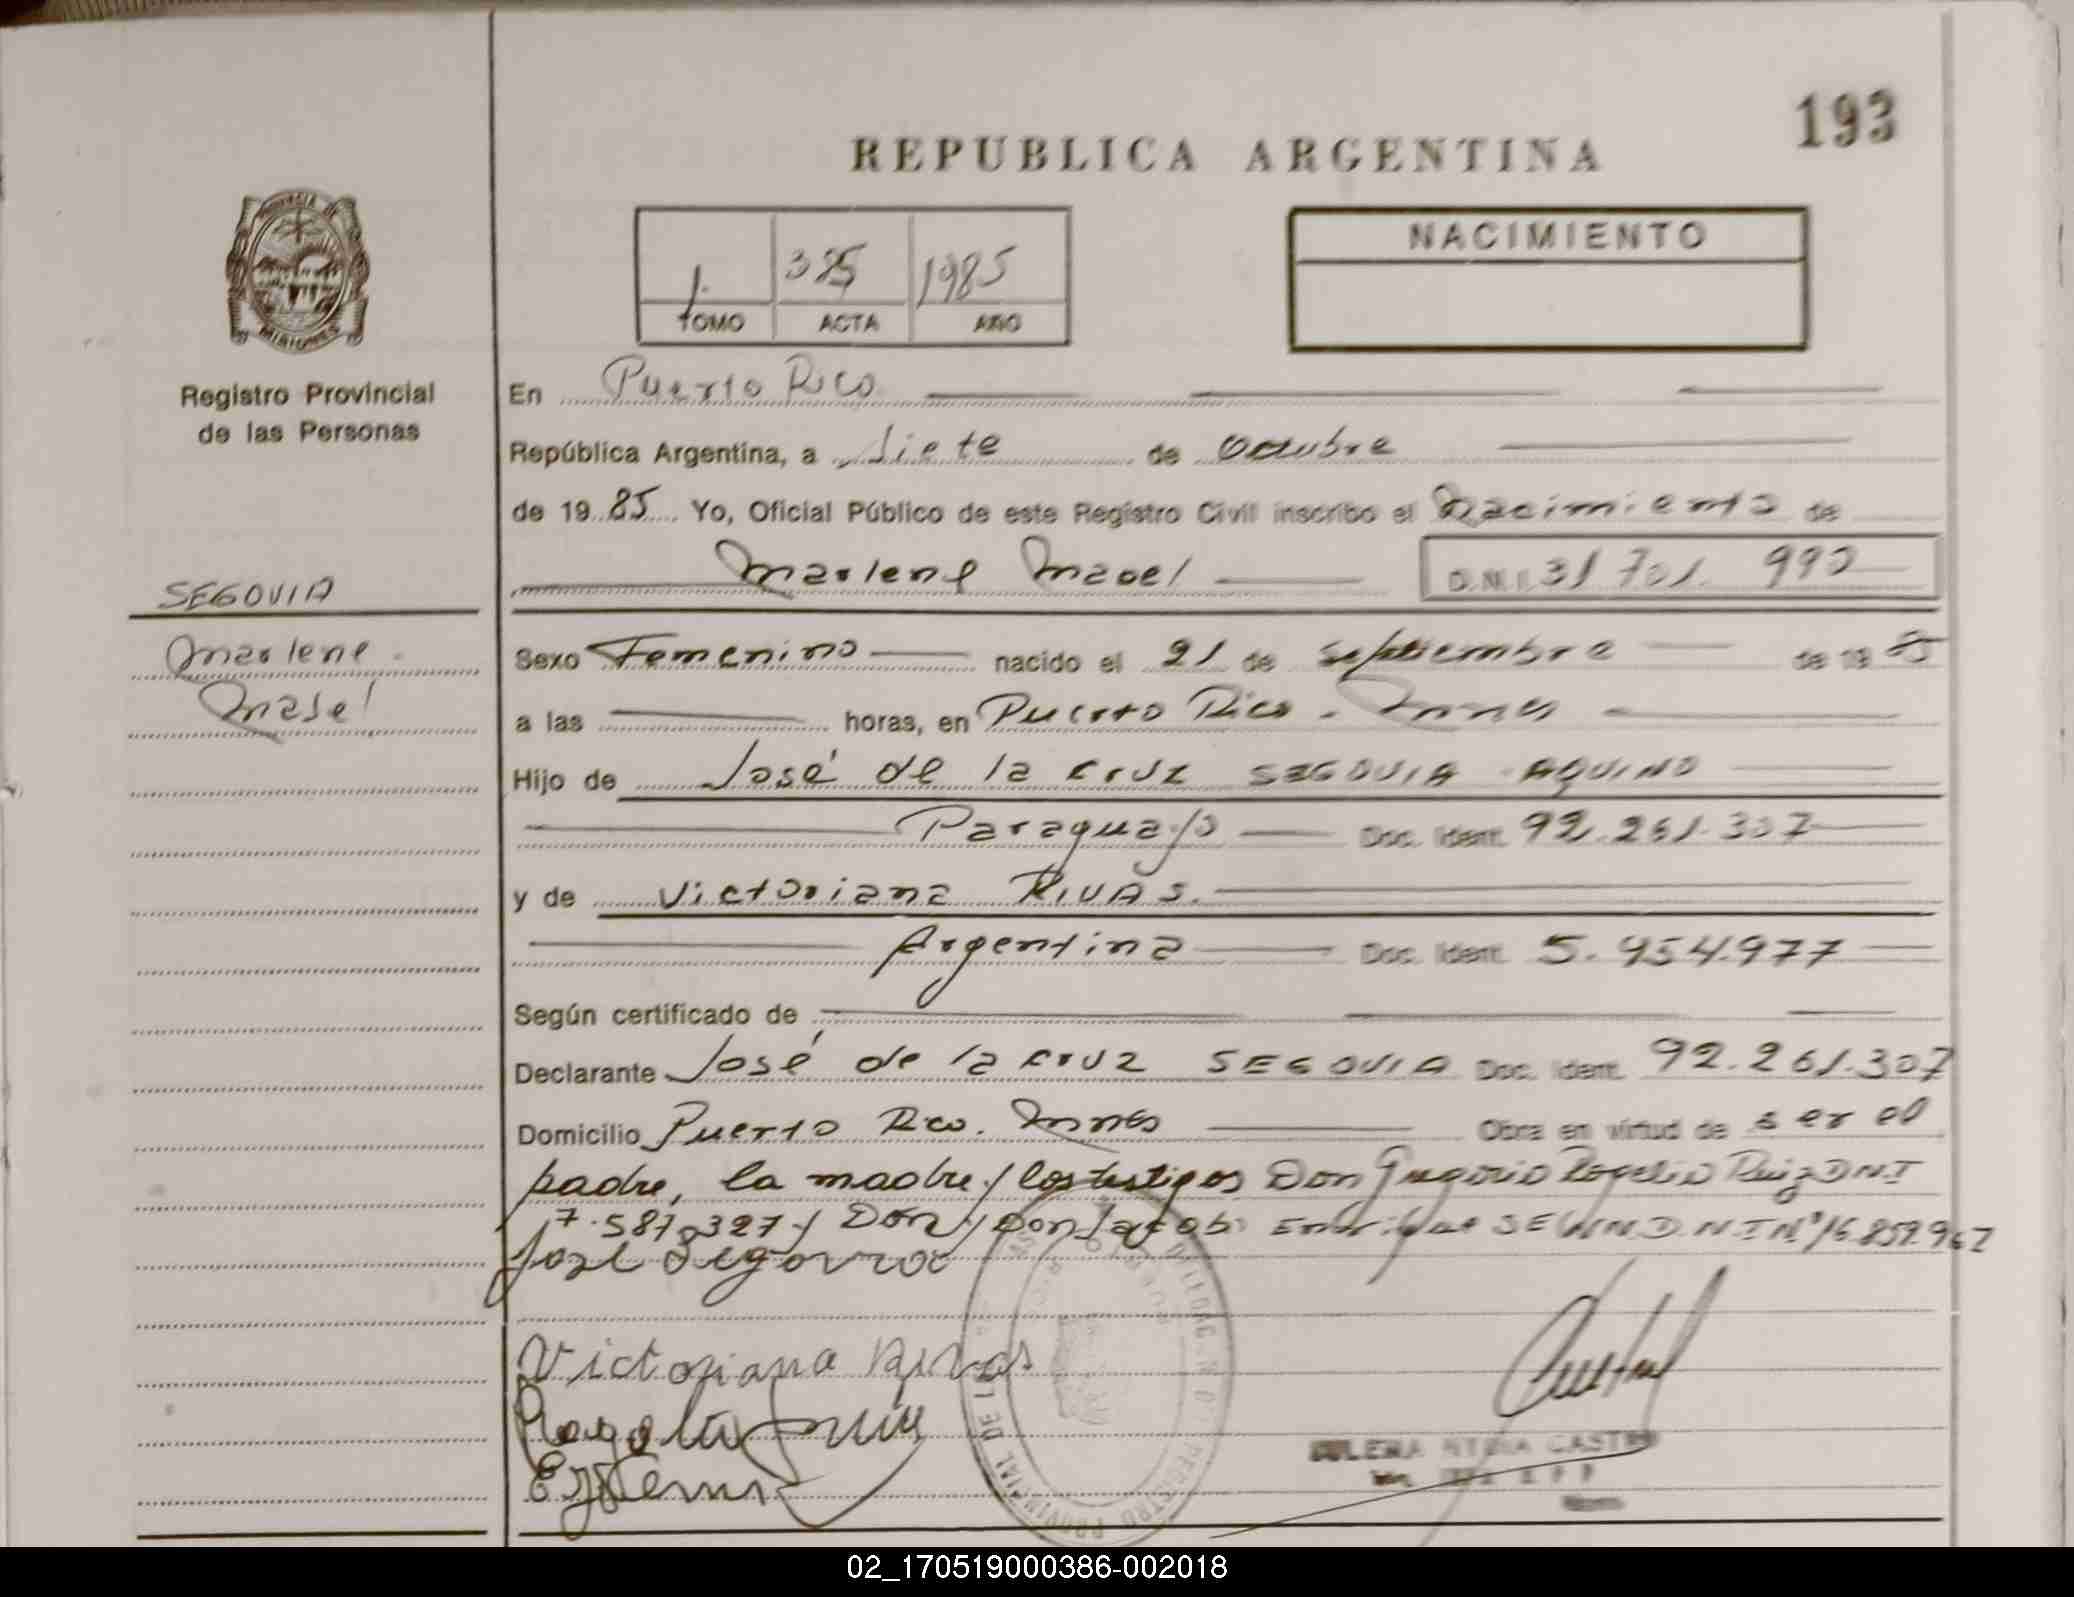 193
REPUBLICA ARGENTINA
PROVINCIA DE
MISIONES
Registro Provincial
de las Personas
1. 385 1985
TOMO ACTA AÑO
NACIMIENTO
En Puerto Rico
República Argentina, a siete de octubre
de 1985 Yo, Oficial Público de este Registro Civil inscribo el Nacimiento de
Marlene Mabel D.N.I. 31 701. 990
SEGOVIA
Marlene
Mabel
Sexo Femenino nacido el 21 de septiembre de 1985
a las horas, en Puerto Rico - Mnes
Hijo de José de la Cruz SEGOVIA AQUINO
Paraguayo Doc. Ident. 92.261.307
y de Victoriana RIVAS.
Argentina Doc. Ident. 5.954.977
Según certificado de
Declarante José de la Cruz SEGOVIA Doc. Ident. 92.261.307
Domicilio Puerto Rico. Mnes Obra en virtud de ser el
padre, la madre y los testigos Don Gregorio Rogelio Ruiz DNI
7.587.327 y Don Jacob Enrique DNI Nº 16.859.967
José Segovia
Victoriana Rivas
ZULEMA NYDIA CASTRO
REGISTRO PROVINCIAL DE LAS
02_170519000386-002018